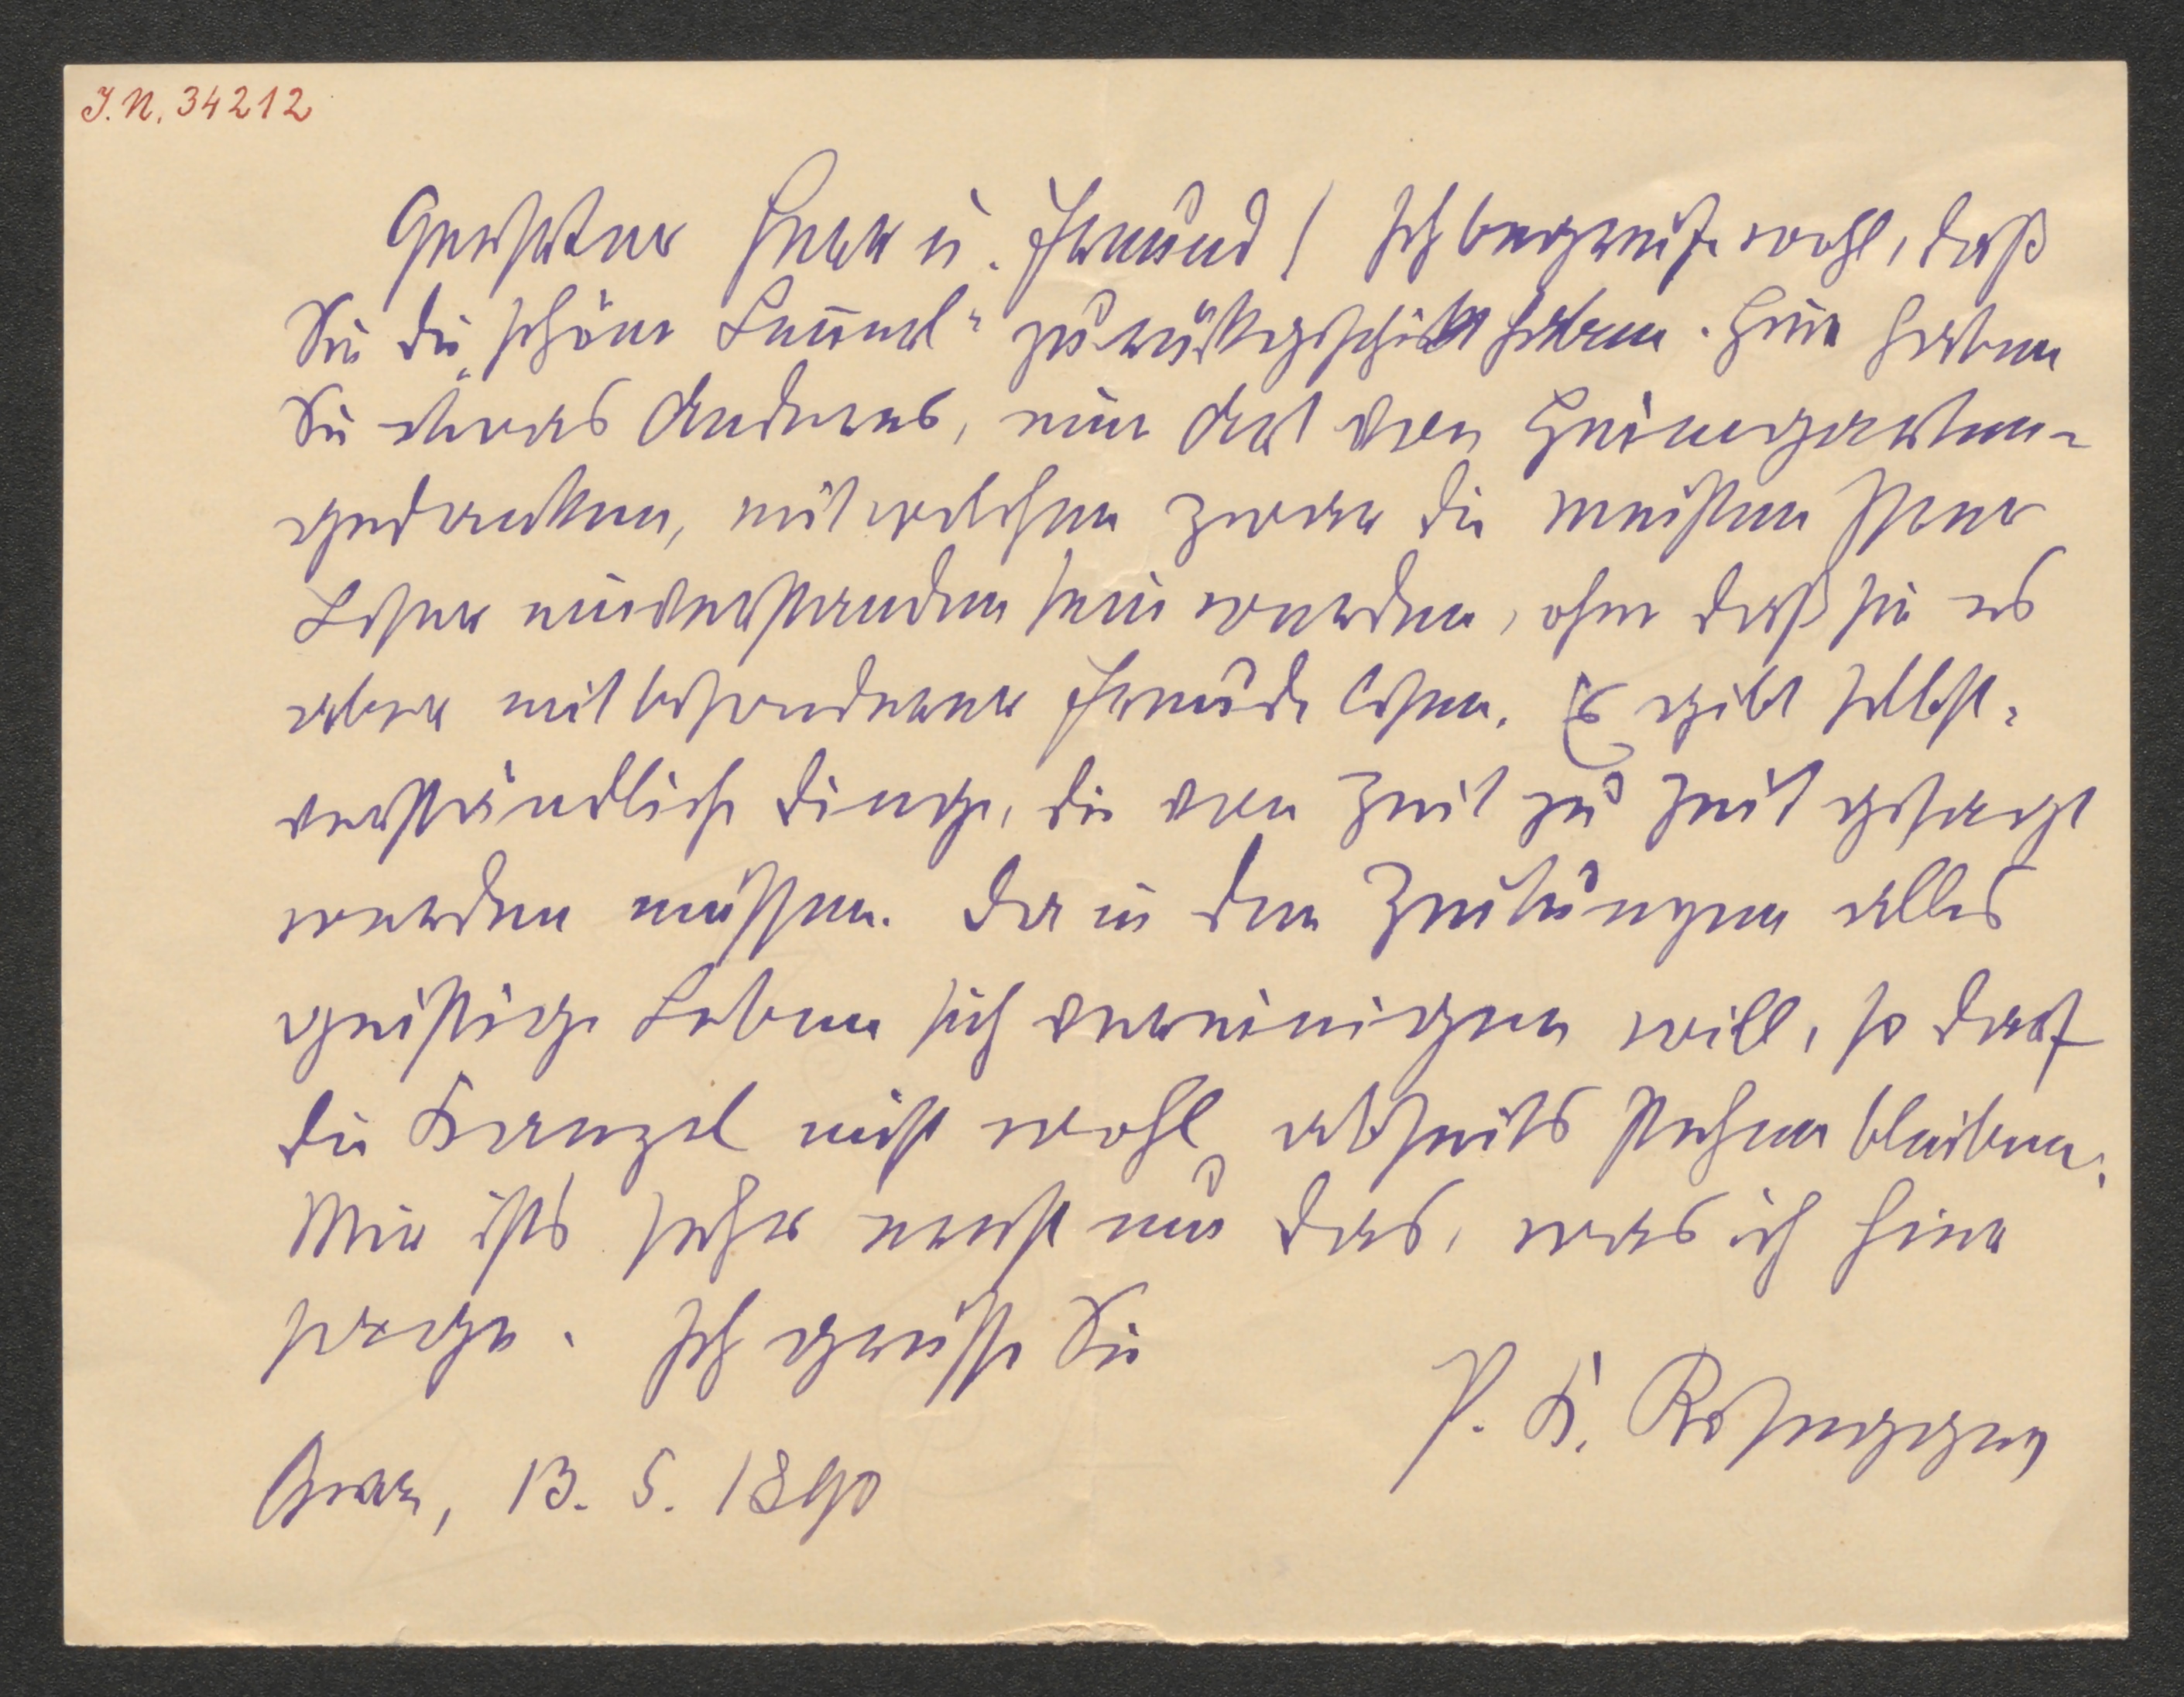 J.N. 34212
Geehrter Herr u. Freund! Ich begreife wohl, daß
Sie die „schöne Lenerl“ zurückgeschickt haben. Hier haben
Sie etwas Anderes, eine Art von Heimgarten-
gedanken, mit welchen zwar die meisten Ihrer
Leser einverstanden sein werden, ohne daß sie es
aber mit besonderer Freude lesen. Es gibt selbst-
verständliche Dinge, die von Zeit zu Zeit gesagt
werden müssen. Da in den Zeitungen alles
geistige Leben sich vereinigen will, so darf
die Kanzel nicht wohl abseits stehen bleiben.
Mir ists sehr ernst um das, was ich hier
sage. Ich grüsse Sie
P. K. Rosegger
Graz, 13. 5. 1890